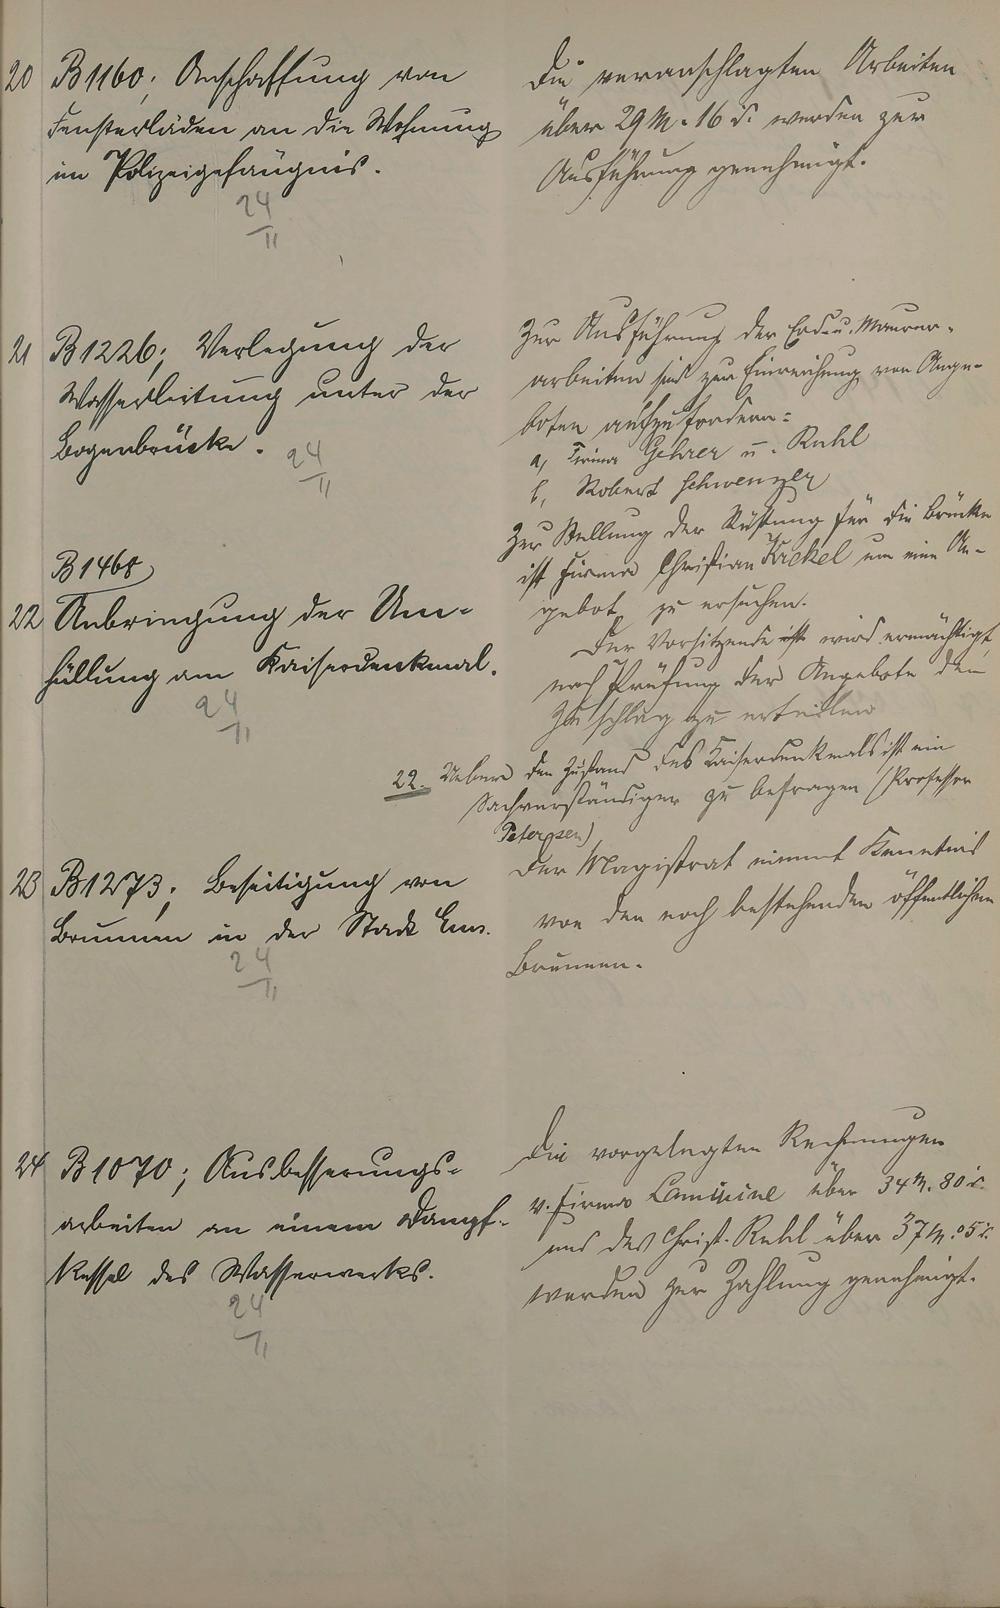 20 B 1160; Anschaffung von
Fensterläden an die Wohnung
im Polizeigefängnis.
24
II
Die veranschlagten Arbeiten
über 29 M. 16 d. werden zur
Ausführung genehmigt.
21 B 1226; Verlegung der
Wasserleitung unter der
Bogenbrücke.
24
II
Zur Ausführung der Erd- u. Maurer-
arbeiten sind zur Einreichung von Ange-
boten aufzufordern:
a, Firma Gehrer u. Ruhl
b, Robert Schwenzer
Zur Stellung der Rüstung für die Brücke
ist Firma Christian Jäckel um ein An-
gebot zu ersuchen.
Der Vorsitzende wird ermächtigt
nach Prüfung der Angebote den
Zuschlag zu erteilen
B 1468
22 Anbringung der Um-
hüllung am Kaiserdenkmal.
24
II
22. Ueber den Zustand des Kaiserdenkmals ist ein
Sachverständiger zu befragen (Professor
Petersen)
23 B 1273; Beseitigung von
Brunnen in der Stadt Ems.
24
II
Der Magistrat nimmt Kenntnis
von den noch bestehenden öffentlichen
Brunnen.
24 B 1070; Ausbesserungs-
arbeiten an einem Dampf-
kessel des Wasserwerks.
24
II
Die vorgelegten Rechnungen
v. Firma über 34 M. 80 d.
und des Christ. Ruhl über 37 M. 05 d.
werden zur Zahlung genehmigt.